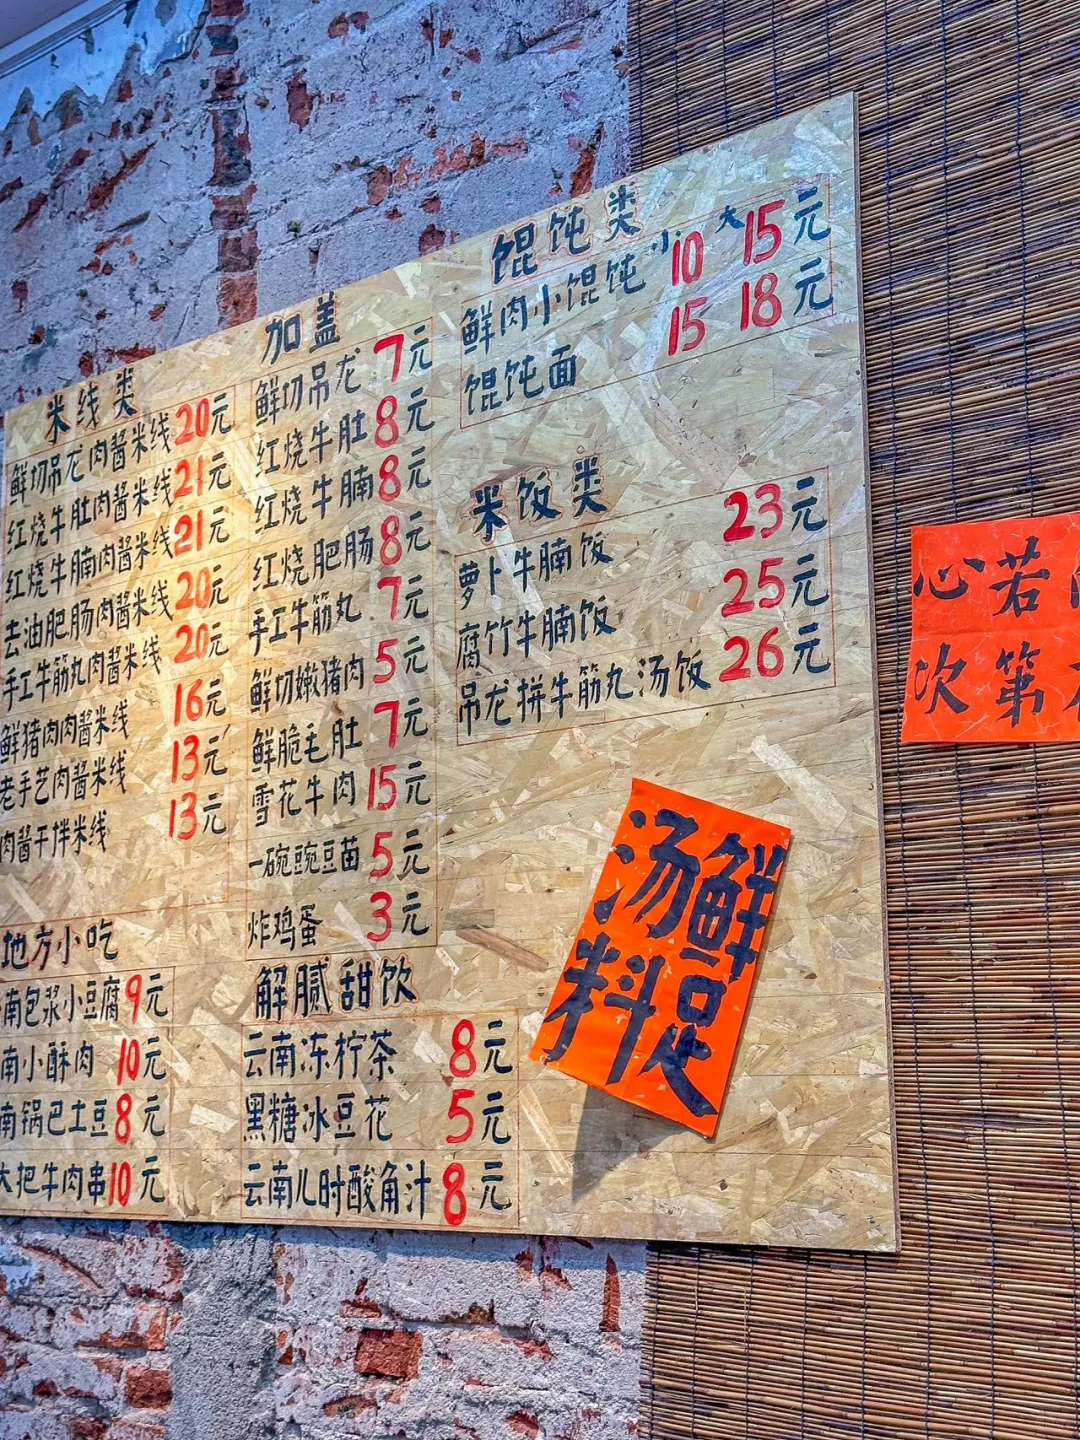 米线类
鲜切吊龙肉酱米线 20元
红烧牛肚肉酱米线 21元
红烧牛腩肉酱米线 21元
去油肥肠肉酱米线 20元
手工牛筋丸肉酱米线 20元
鲜猪肉肉酱米线 16元
老手艺肉酱米线 13元
肉酱干拌米线 13元
地方小吃
南包浆小豆腐 9元
南小酥肉 10元
南锅巴土豆 8元
大把牛肉串 10元
加盖
鲜切吊龙 7元
红烧牛肚 8元
红烧牛腩 8元
红烧肥肠 8元
手工牛筋丸 7元
鲜切嫩猪肉 5元
鲜脆毛肚 7元
雪花牛肉 15元
一碗豌豆苗 5元
炸鸡蛋 3元
解腻甜饮
云南冻柠茶 8元
黑糖冰豆花 5元
云南儿时酸角汁 8元
馄饨类
鲜肉小馄饨 小10 大15元
馄饨面 15 18元
米饭类
萝卜牛腩饭 23元
腐竹牛腩饭 25元
吊龙拼牛筋丸汤饭 26元
汤鲜
料足
心若
次第